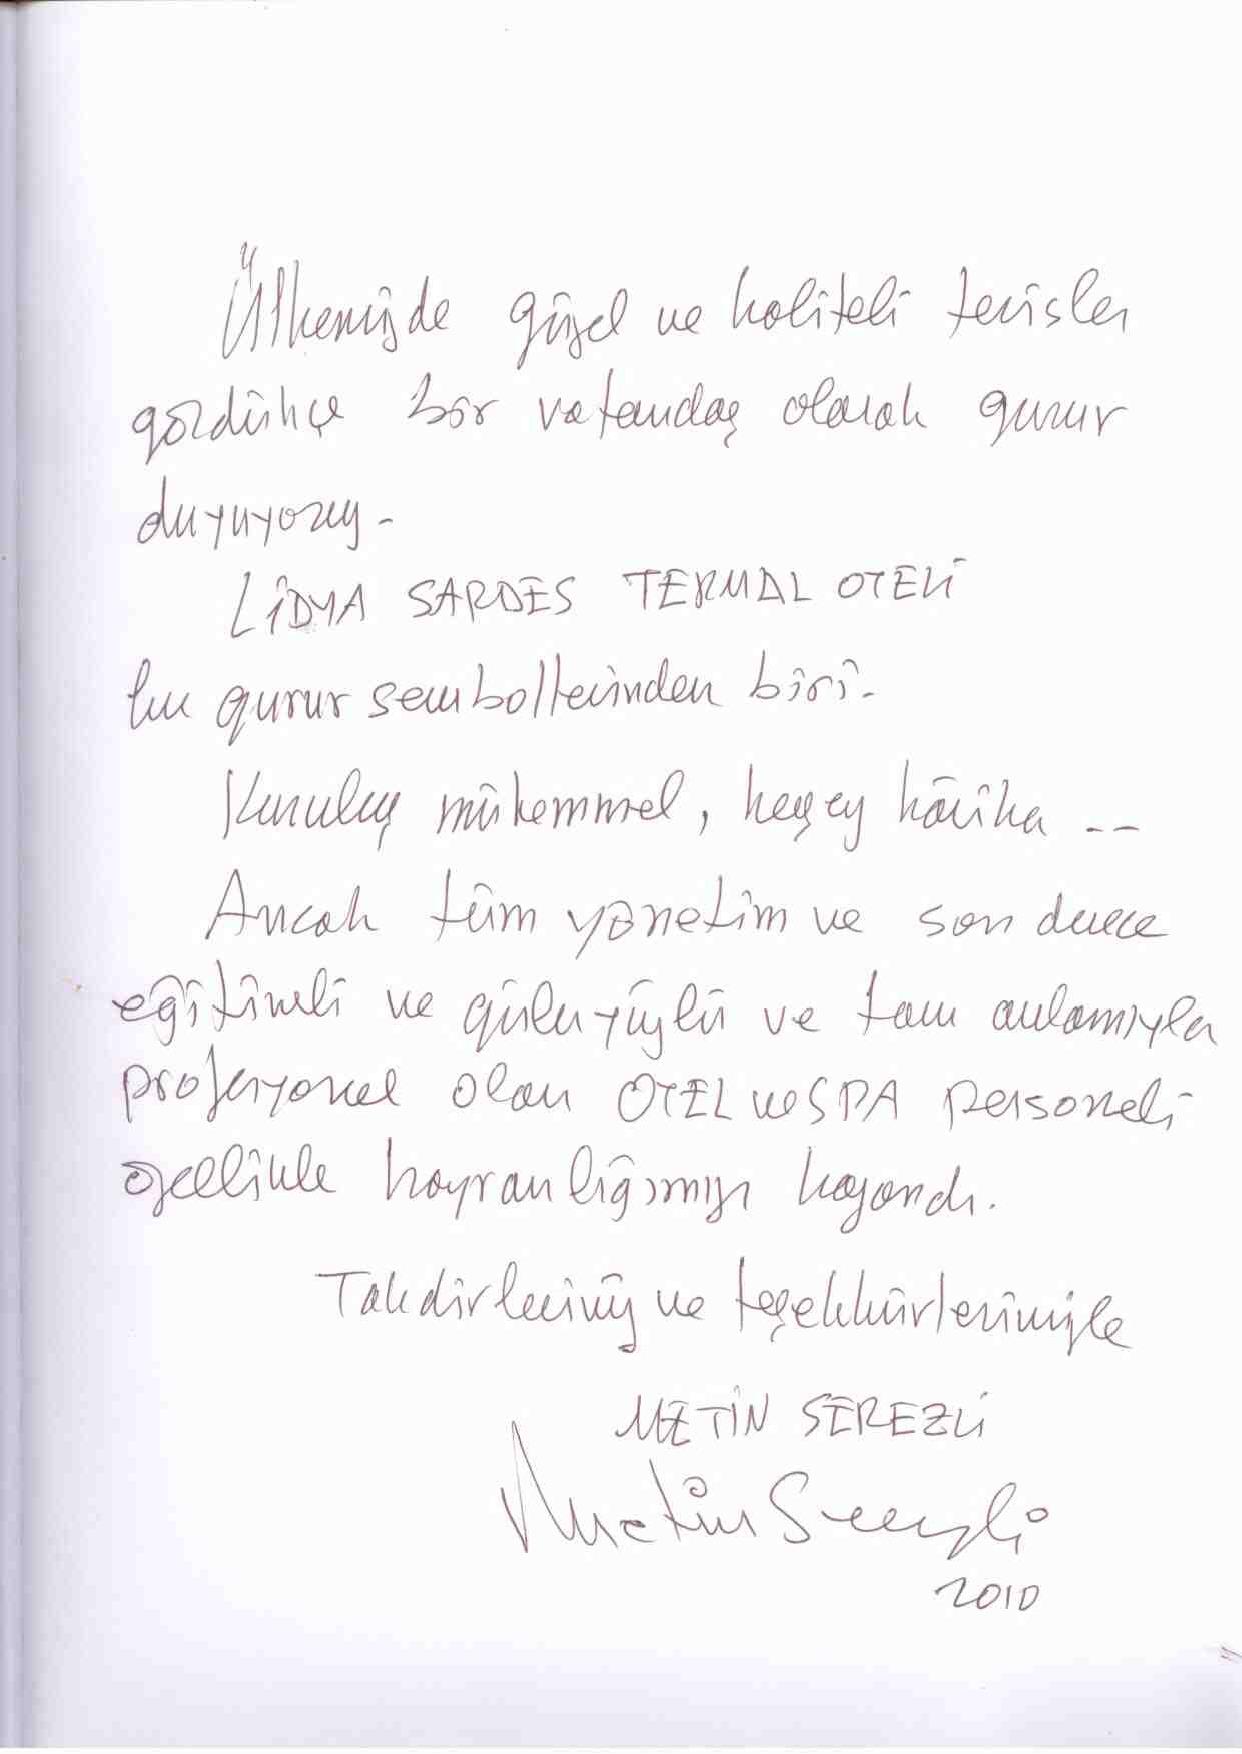 Ülkemizde güzel ve kaliteli tesisler
gördükçe bir vatandaş olarak gurur
duyuyoruz.
LİDYA SARDES TERMAL OTELİ
bu gurur sembollerinden biri.
Kuruluş mükemmel, herşey hârika --
Ancak tüm yönetim ve son derece
eğitimli ve güleryüzlü ve tam anlamıyla
profesyonel olan OTEL ve SPA personeli
özellikle hayranlığımızı kazandı.
Takdirlerimiz ve teşekkürlerimizle
METİN SEREZLİ
Metin Serezli
2010